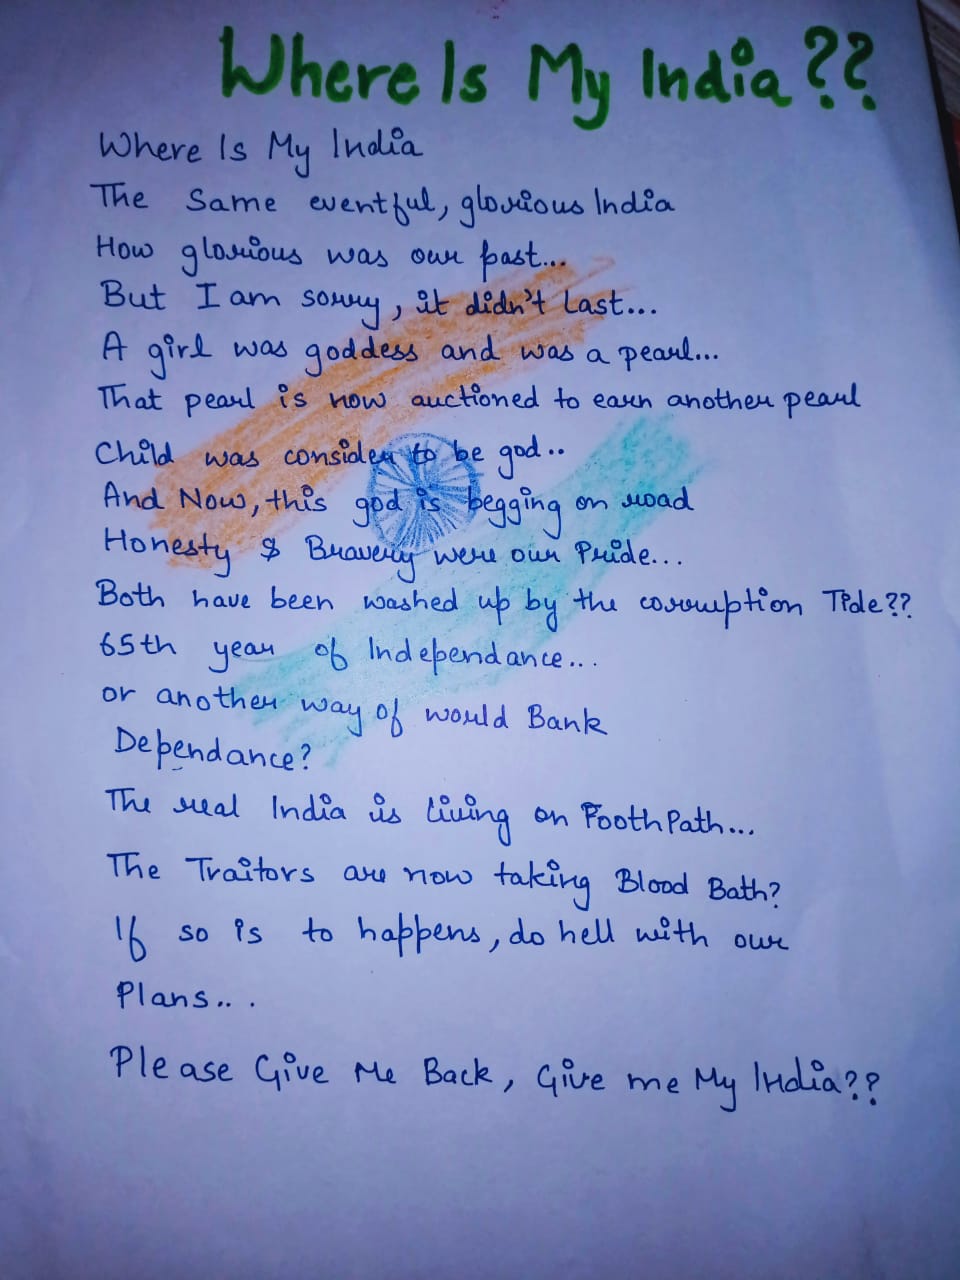 Where Is My India??
Where Is My India
The Same eventful, glorious India
How glorious was our past...
But I am sorry, it didn't last...
A girl was goddess and was a pearl...
That pearl is now auctioned to earn another pearl
Child was consider to be god..
And Now, this god is begging on road
Honesty & Bravery were our Pride...
Both have been washed up by the corruption Tide??
65th year of Independance...
or another way of world Bank
Dependance?
The real India is living on FoothPath...
The Traitors are now taking Blood Bath?
If so is to happens, do hell with our
Plans...
Please Give Me Back, Give me My India??